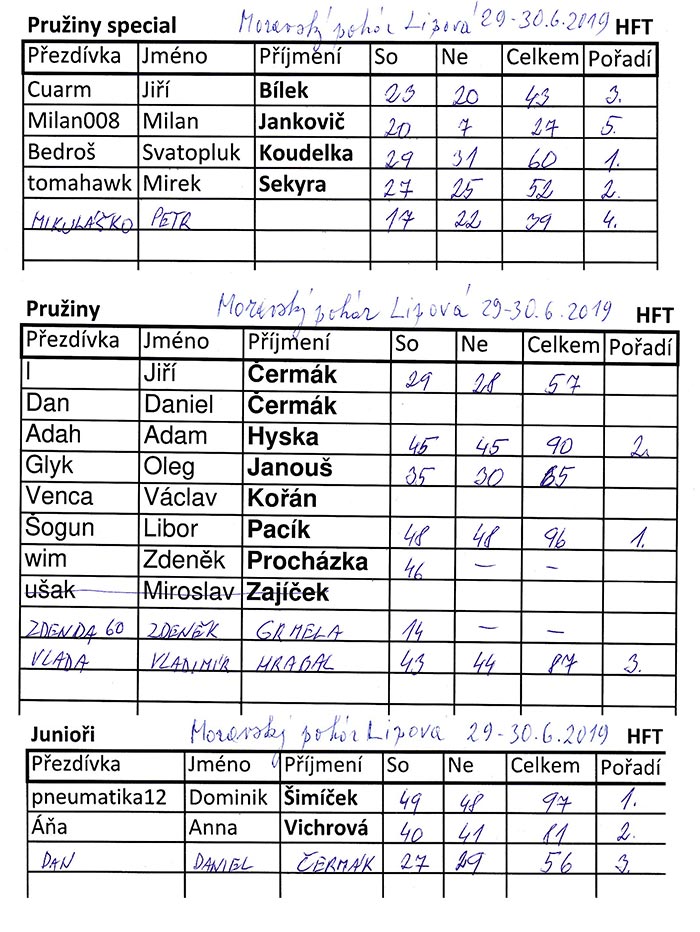 Pružiny special Moravský pohár Lipová 29-30.6.2019 HFT
Přezdívka Jméno Příjmení So Ne Celkem Pořadí
Cuarm Jiří Bílek 23 20 43 3.
Milan008 Milan Jankovič 20 7 27 5.
Bedroš Svatopluk Koudelka 29 31 60 1.
tomahawk Mirek Sekyra 27 25 52 2.
MIKULÁŠKO PETR 17 22 39 4.
Pružiny Moravský pohár Lipová 29-30.6.2019 HFT
Přezdívka Jméno Příjmení So Ne Celkem Pořadí
I Jiří Čermák 29 28 57
Dan Daniel Čermák
Adah Adam Hyska 45 45 90 2.
Glyk Oleg Janouš 35 30 65
Venca Václav Kořán
Šogun Libor Pacík 48 48 96 1.
wim Zdeněk Procházka 46 – –
ušak Miroslav Zajíček
ZDENDA 60 ZDENĚK GRMELA 14 – –
VLADA VLADIMÍR HRABAL 43 44 87 3.
Junioři Moravský pohár Lipová 29-30.6.2019 HFT
Přezdívka Jméno Příjmení So Ne Celkem Pořadí
pneumatika12 Dominik Šimíček 49 48 97 1.
Áňa Anna Vichrová 40 41 81 2.
DAN DANIEL ČERMÁK 27 29 56 3.